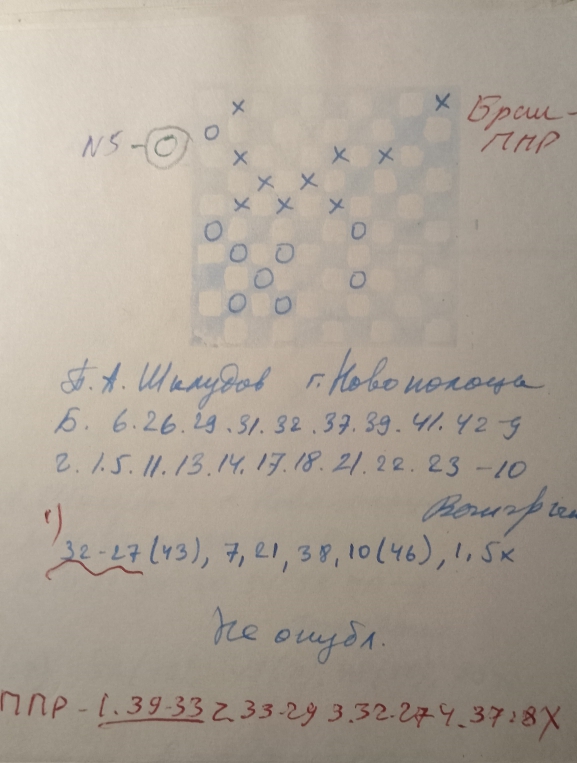 N5 -
Браш-
ППР
П. А. Шклудов г. Новополоцк
Б. 6.26.29.31.32.37.39.41.42-9
2. 1.5.11.13.14.17.18.21.22.23 -10
1)
32-27(43), 7, 21, 38, 10(46), 1, 5x
Не опубл.
ППР - 1. 39-33 2. 33-29 3. 32-27 4. 37:8X